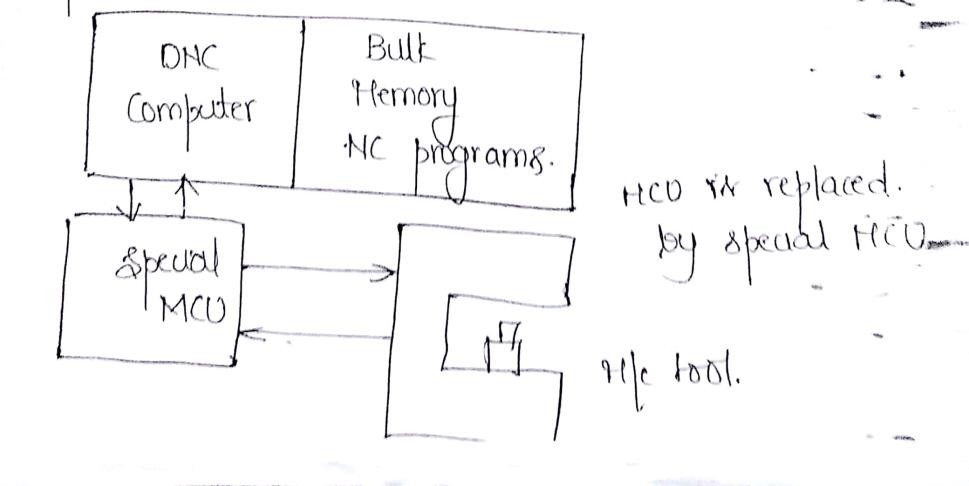 DNC
Computer
Bulk
Memory
NC programs.
Special
MCU
MCU is replaced.
by special MCU
M/c tool.